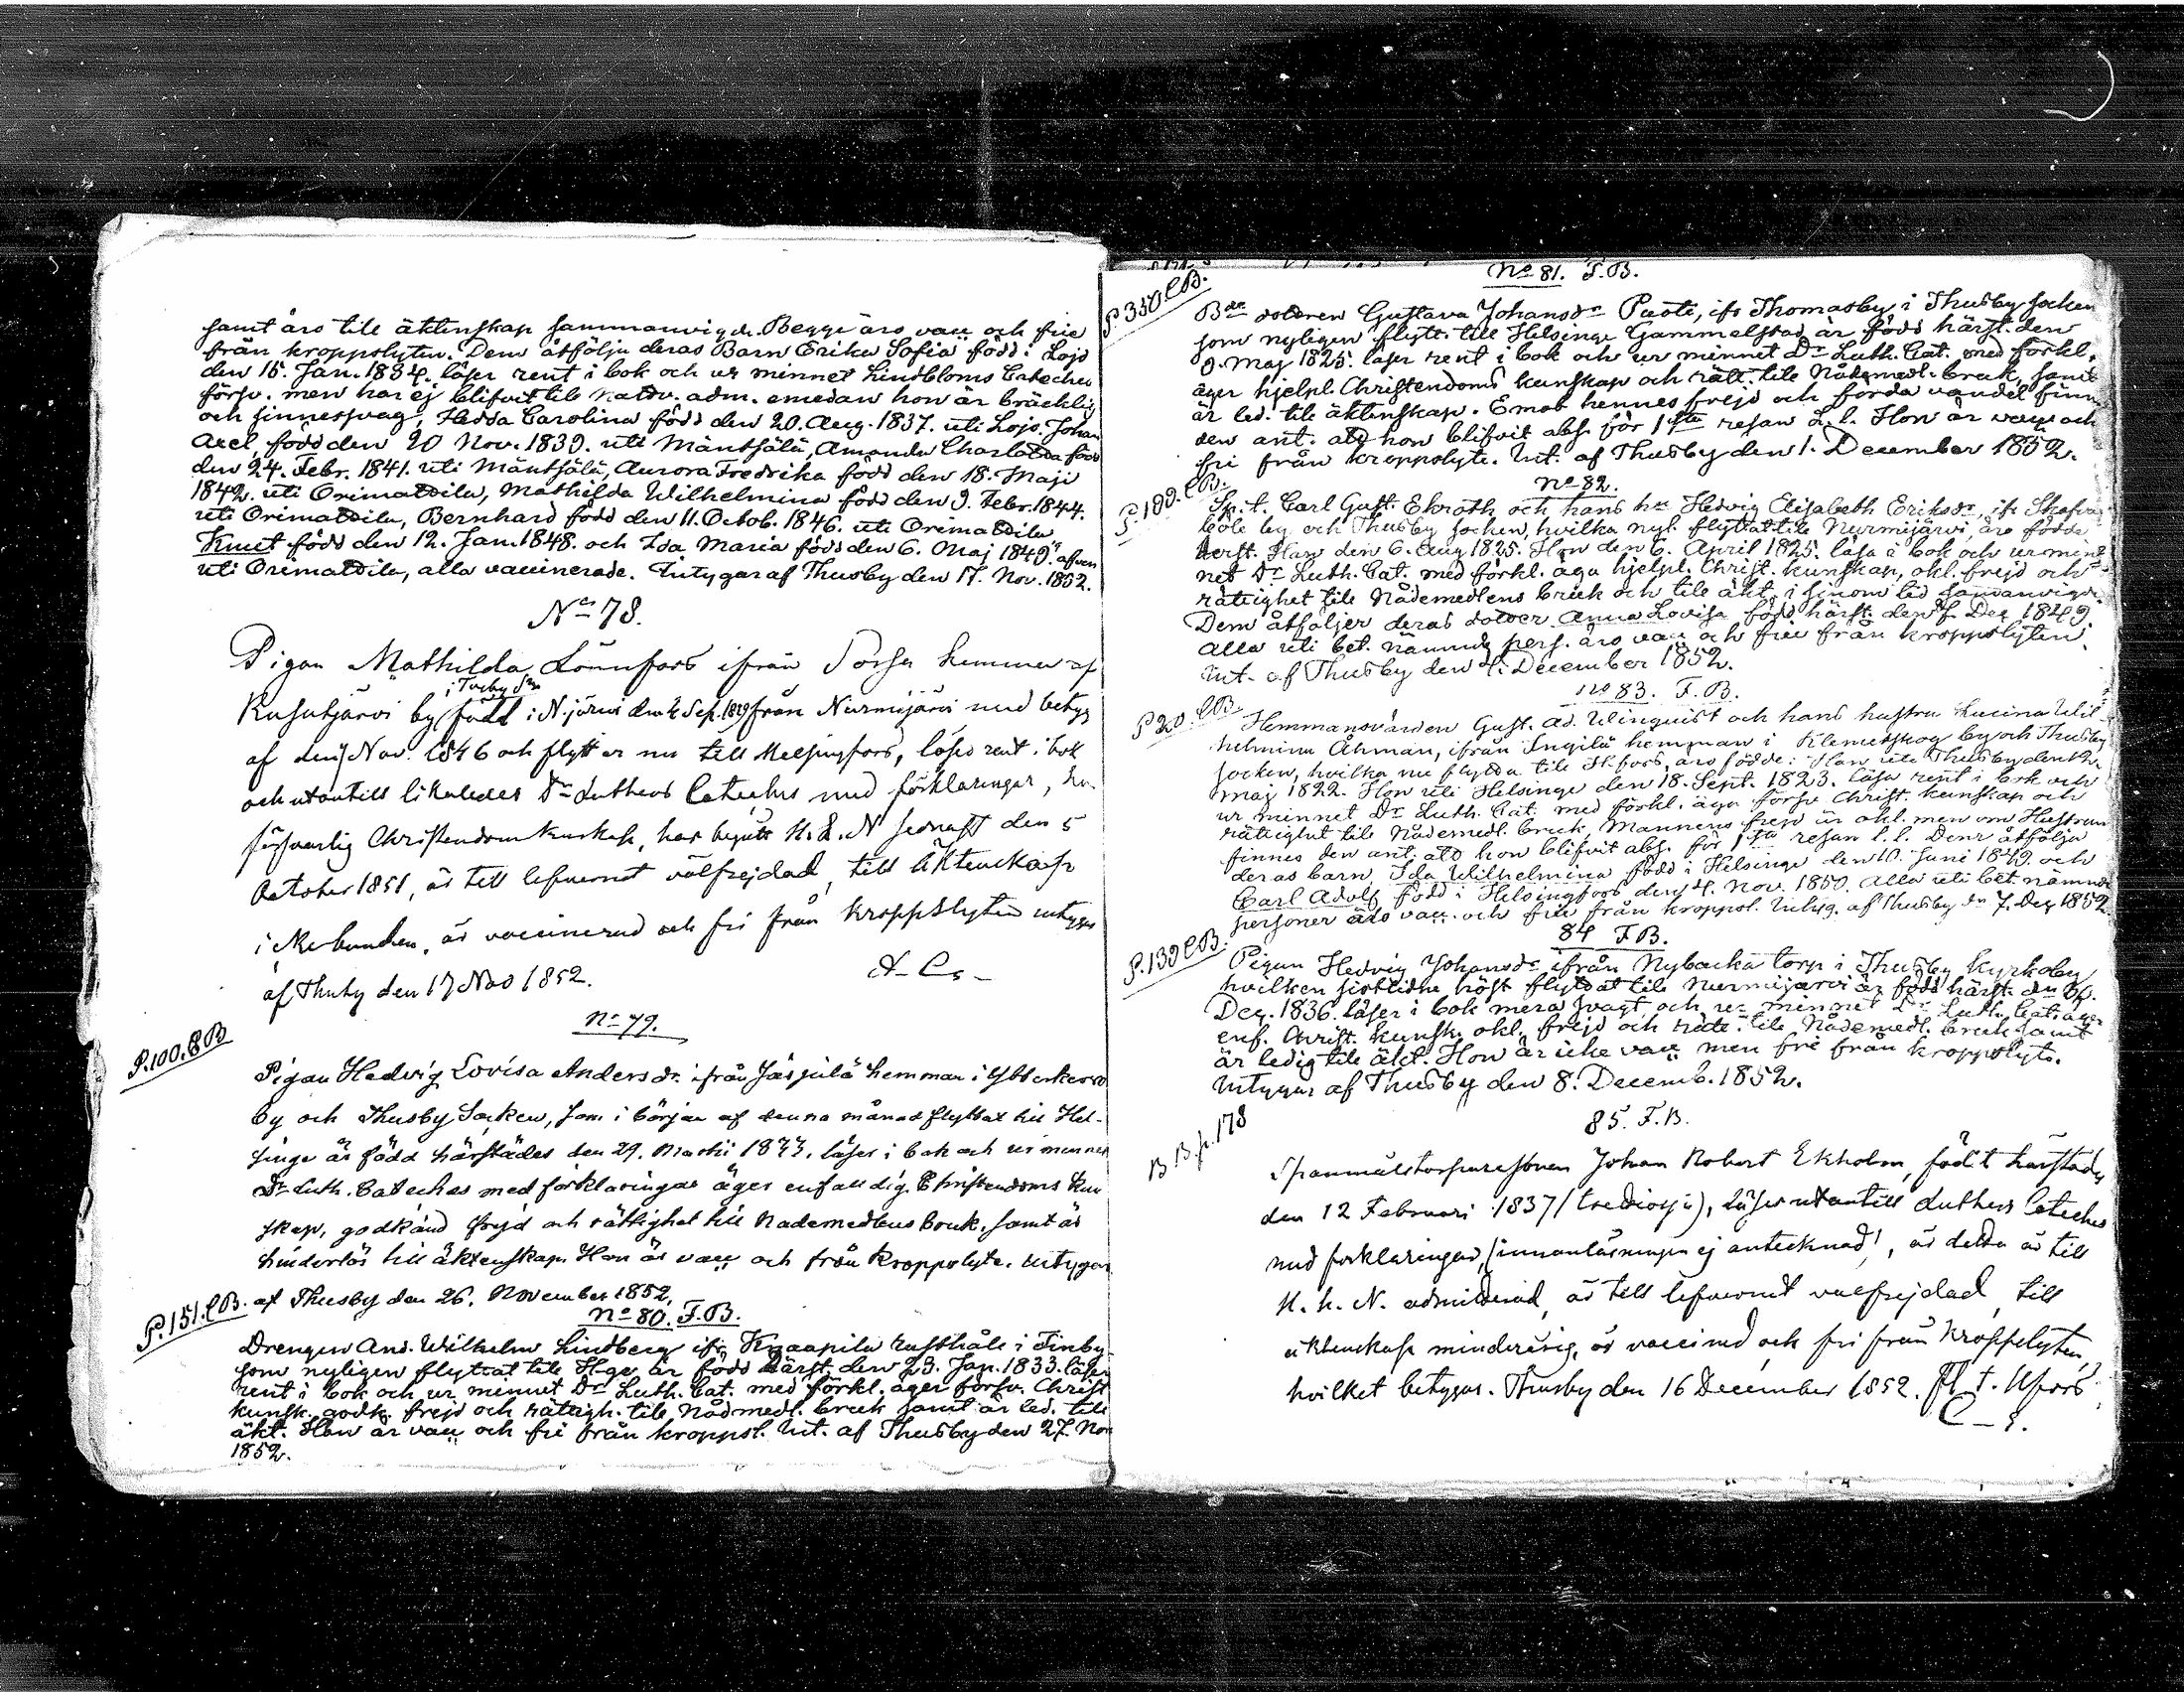 samt äro till äktenskap sammanvigde. Begge äro vacc och frie
från kroppslyten. Dem åtfölja deras Barn Erika Sofia född i Lojo
den 15. Jan. 1834. läser rent i bok och ur minnet Lindbloms Cateches
försv. men har ej blifvit till nattv. adm. emedan hon är bräcklig
och sinnessvag, Hedda Carolina född den 20. Aug. 1837. uti Lojo, Johan
Axel, född den 20 Nov. 1839. uti Mäntsälä, Amanda Charlotta född
den 24. Febr. 1841. uti Mäntsälä, Aurora Fredrika född den 18. Maji
1842. uti Orimattila, Mathilda Wilhelmina född den 9. Febr. 1844.
uti Orimattila, Bernhard född den 11. Octob. 1846. uti Orimattila
Knut född den 12. Jan. 1848. och Ida Maria född den 6. Maj 1849. äfven
uti Orimattila, alla vaccinerade. Intygar af Thusby den 17. Nov. 1852.
No 78.
Pigan Mathilda Lönnfors ifrån hemman af
i Tusby Sn
Rusutjärvi by född i N.järvi den Sep. 1829 från Nurmijärvi med betyg
af den 7 Nov. 1846 och flyttar nu till Helsingfors, läser rent i bok
och utantill likaledes Dr Luthers Cateches med förklaringar, har
försvarlig Christendoms kunskap, har begått H. H. N senast den 5
October 1851, är till lefvernet välfrejdad, till äktenskap
icke bunden, är vaccinerad och fri från kroppslyten intygar
af Thusby den 17 Nov 1852.
No 79.
P. 100. CB
Pigan Hedvig Lovisa Andersdr. ifrån Jäspilä hemman i Ytterkervo
by och Thusby Socken, som i början af denna månad flyttat till Hel-
singe är född härstädes den 29. Martii 1833. läser i bok och ur minnet
Dr Luth. Cateches med förklaringar äger enfaldig Christendoms kun
skap, godkänd frejd och rättighet till Nademedlens bruk, samt är
hinderlös till äktenskap. Hon är vacc och från kroppslyte. Intygar
af Thusby den 26. November 1852.
No 80. F.B.
P. 151. CB.
Drengen And. Wilhelm Lindberg ifr. Knaapila rusthåll i Finby
som nyligen flyttat till H-ge är född härst. den 23. Jan. 1833. läser
rent i bok och ur minnet Dr Luth. Cat. med förkl. äger försv. Christ
kunsk. godk. frejd och rättigh. till Nådmedl. bruk samt är led. till
äkt. Han är vacc och fri från kroppsl. Int. af Thusby den 27. Nov
1852.
No 81. F.B.
P 350. CB.
dottren Gustava Johansdr ifr Thomasby i Thusby socken
som nyligen flytt. till Helsinge Gammelstad är född härst. den
9. Maj 1825. läser rent i bok och ur minnet Dr Luth. Cat. med förkl.
äger hjelpl. Christendoms kunskap och rätt. till Nådemedl. bruk, samt
är led. till äktenskap. Emot hennes frejd och förda vandel finnes
den ant. att hon blifvit abs. för 1sta resan L. l. Hon är vacc och
fri från kroppslyte. Int. af Thusby den 1. December 1852.
No 82.
P. 199. CB.
Carl Gust. Ekroth och hans hu Hedvig Elisabeth Eriksdr, ifr Skafva
böle by och Thusby socken, hvilka nyl. flyttat till Nurmijärvi, äro födde
härst. Han den 6. Aug 1825. Hon den 6. April 1825. läsa i bok och ur min
net Dr Luth. Cat. med förkl. äga hjelpl. Christ. kunskap, okl. frejd och
rättighet till Nådemedlens bruk och till äkt. i sinom tid samanvigde.
Dem åtföljer deras dotter Anna Lovisa född härst. den Dec 1849.
Alla uti bet. nämnde pers. äro vacc och frie från kroppslyten.
Int. af Thusby den December 1852.
No 83. F.B.
P 20. CB.
Hemmansvärden Gust. Ad. Winquist och hans hustru Lucina Wil
helmina Åhman, ifrån Ingilä hemman i Klemetskog by och Thusby
socken, hvilka nu flytta till H.fors, äro födde: Han uti Thusby den
Maj 1822. Hon uti Helsinge den 18. Sept. 1823. läsa rent i bok och
ur minnet Dr Luth. Cat. med förkl. äga försv Christ. kunskap och
rättighet till Nådemedl. bruk, Mannens frejd är okl. men om Hustrun
finnes den ant. att hon blifvit abs. för 1sta resan l. l. Dem åtfölja
deras barn, Ida Wilhelmina född i Helsinge den 10. Juni 1849. och
Carl Adolf född i Helsingfors den 4. Nov. 1850. Alla uti bet. nämnde
personer äro vacc. och frie från kroppsl. Intyg. af Thusby dn 7. Dec 1852
84 F.B.
P. 139 CB.
Pigan Hedvig Johansdr ifrån Nybacka torp i Thusby kyrkoby
hvilken sistlidne höst flyttat till Nurmijärvi är född härst. den
Dec. 1836. läser i bok mera svagt och ur minnet Dr Luth. Cat. äger
enf. Christ. kunsk. okl. frejd och rätt. till Nådemedl. bruk samt
är ledig till äkt. Hon är icke vacc men fri från kroppslyte.
Intygar af Thusby den 8. Decemb. 1852.
85. F.B.
B B. p. 178
Spanmålstorparesonen Johan Robert Ekholm, född härstädes
den 12 Februari 1837 (trettiosju), läser utantill Luthers Cateches
med förklaringar, (innanläsningen ej antecknad), är till
H. h. N. admitterad, är till lefvernet välfrejdad, till
äktenskap minderårig, är vaccined och fri från kroppslyten,
hvilket betygas. Thusby den 16 December 1852. Fl. t. Hfors